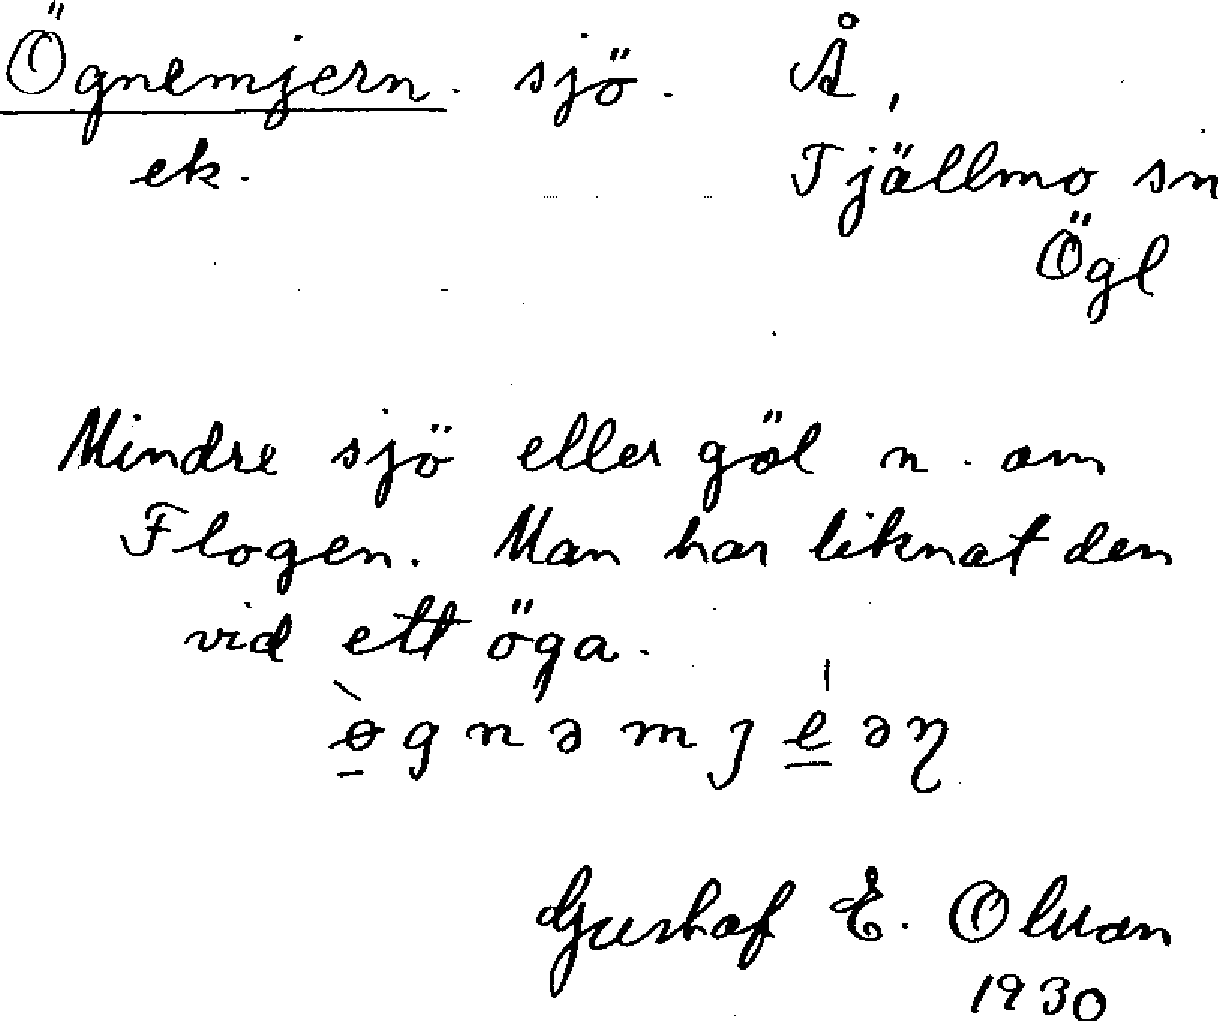 Ögnemjern. sjö. Å,
ek. Tjällmo sn
Ögl
Mindre sjö eller göl n. om
Flogen. Man har liknat den
vid ett öga.
Gustaf E.
1930